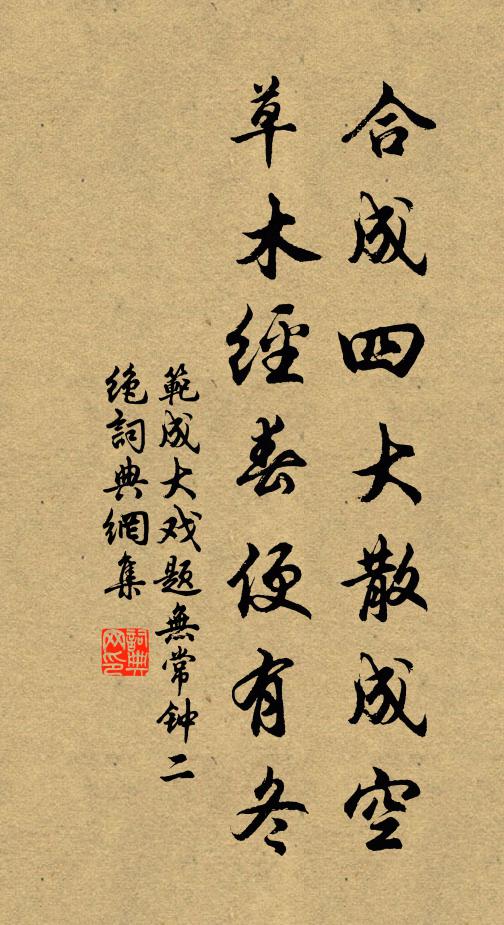 合成四大散成空
草木經春便有冬
範成大戏题無常钟二
绝詞典網集
詞典
网印